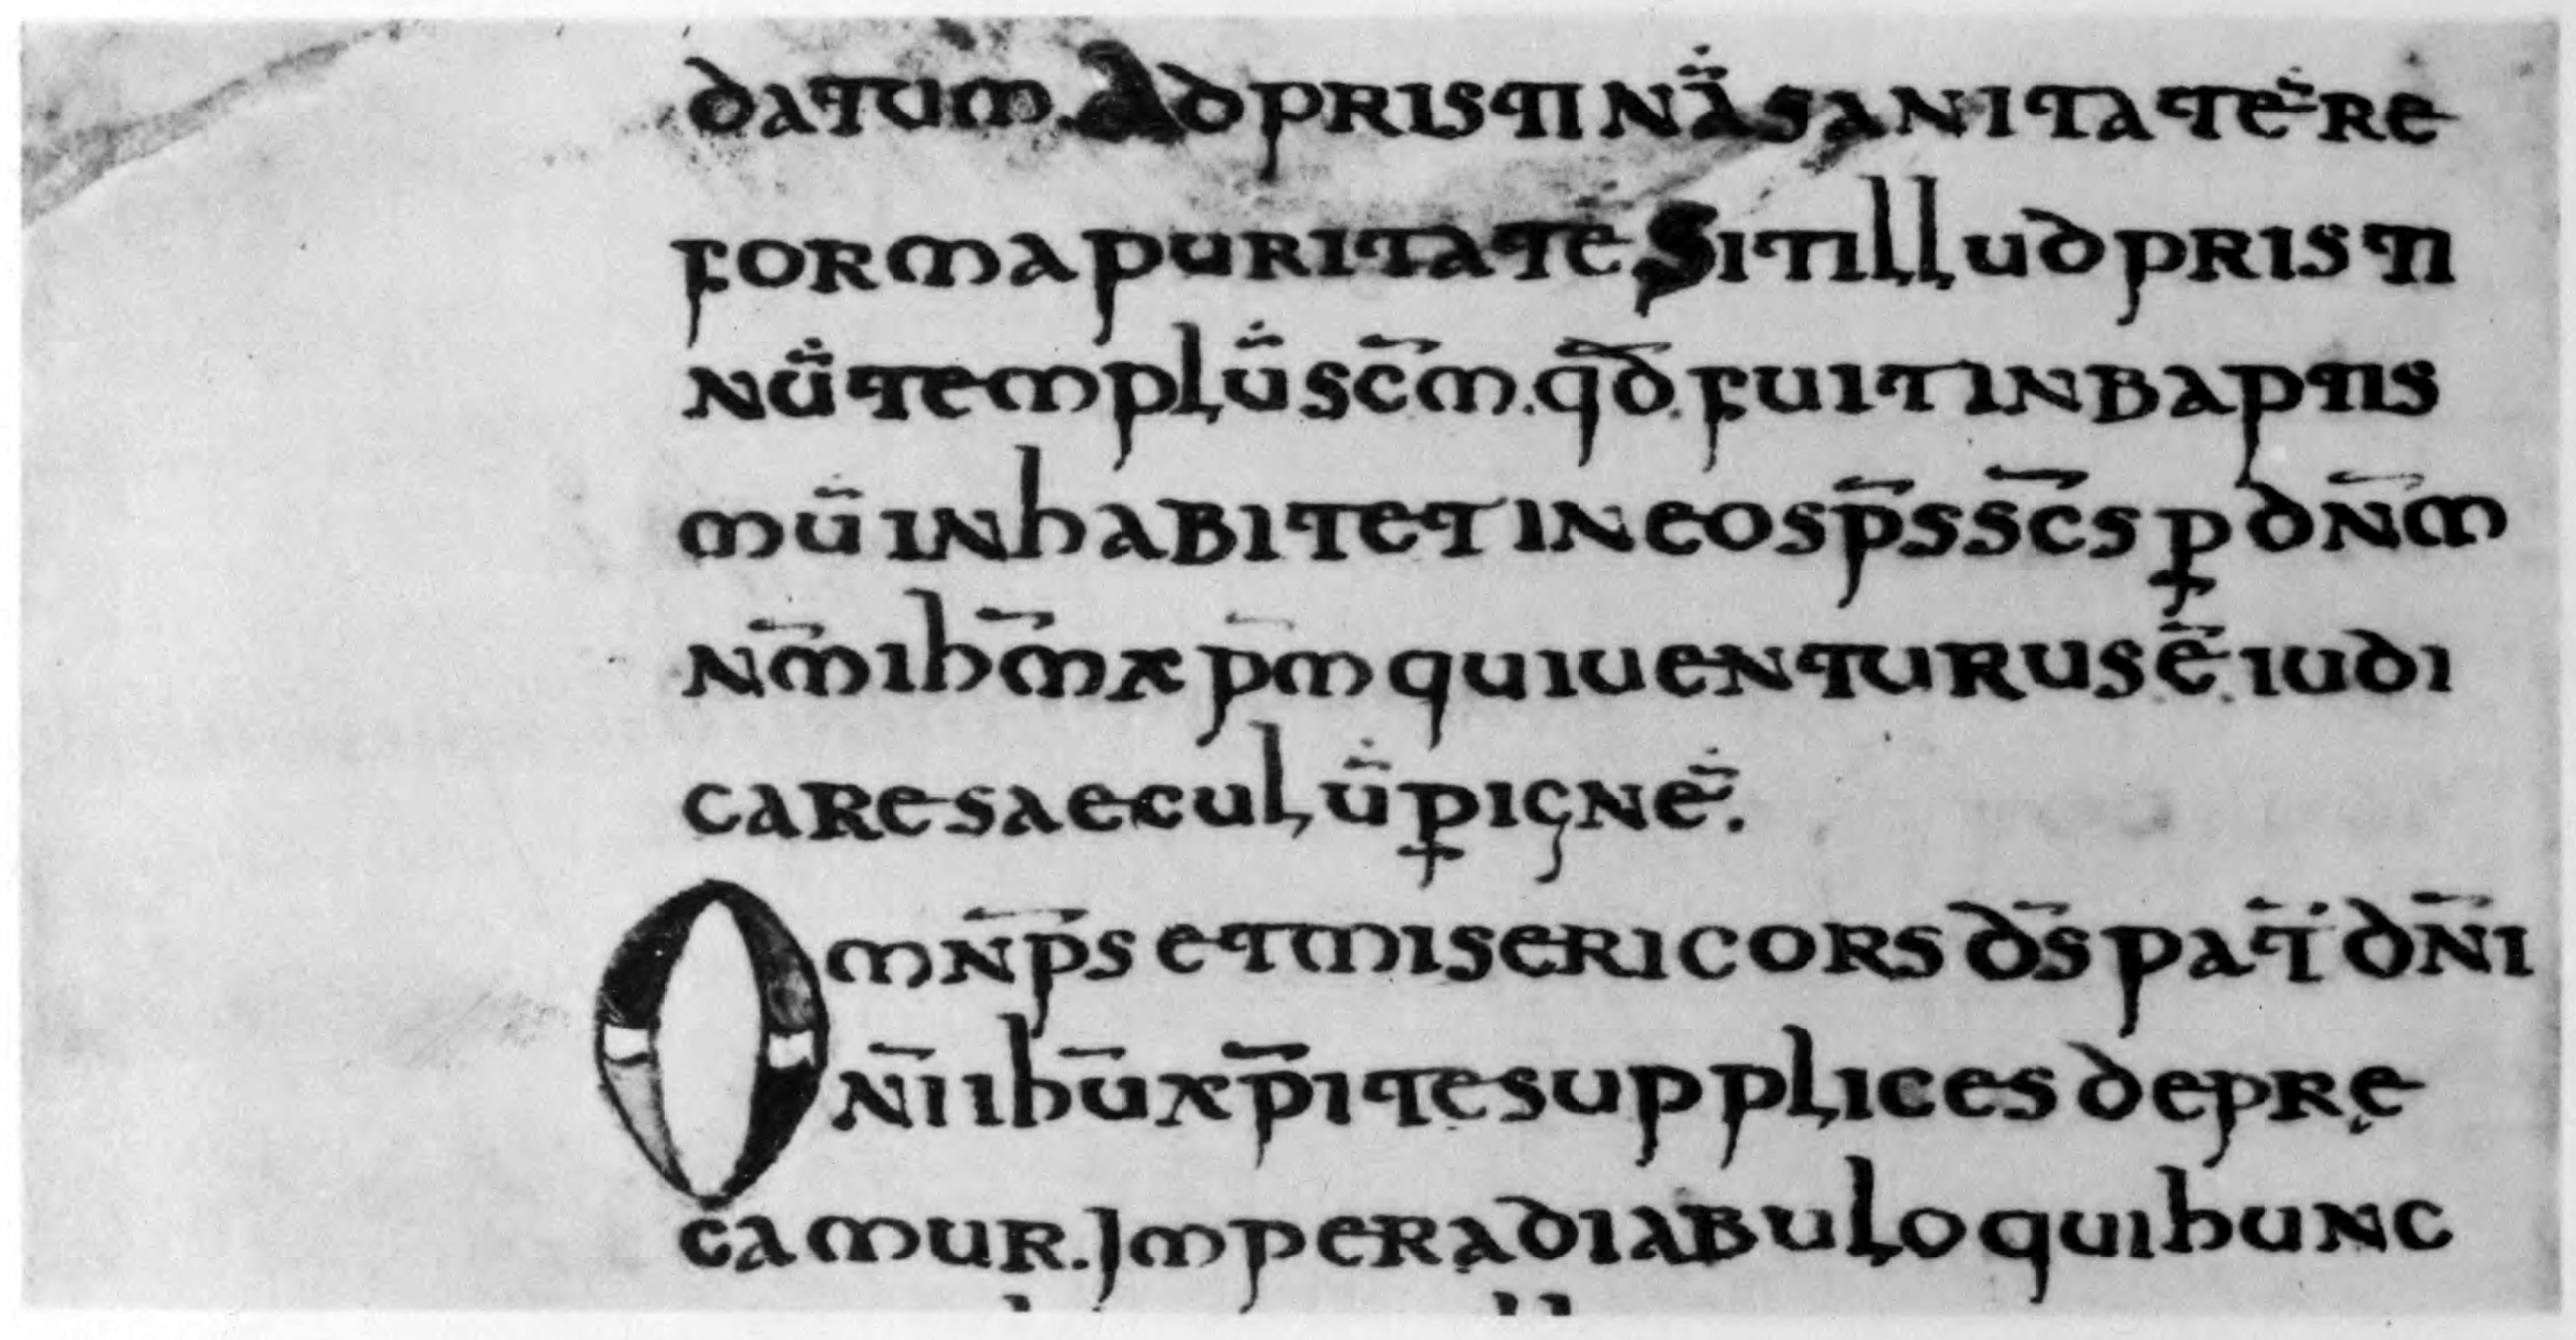 datum. Ad pristinā sanitatē re
forma puritate Sit illud pristi
nū templū sc̄m. qd̄. fuit in baptis
mū inhabitet in eo sp̄s sc̄s ꝑ dn̄m
nm̄ ihm̄ xp̄m qui uenturus ē iudi
care saeculū ꝑ ignē.
Omnp̄s et misericors ds̄ pat̄ dn̄i
nī ihū xp̄i te supplices deprę
camur. Impera diabulo qui hunc